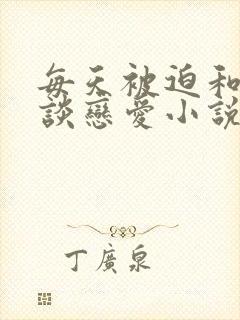 每天被迫和
談戀愛小說
丁廣泉